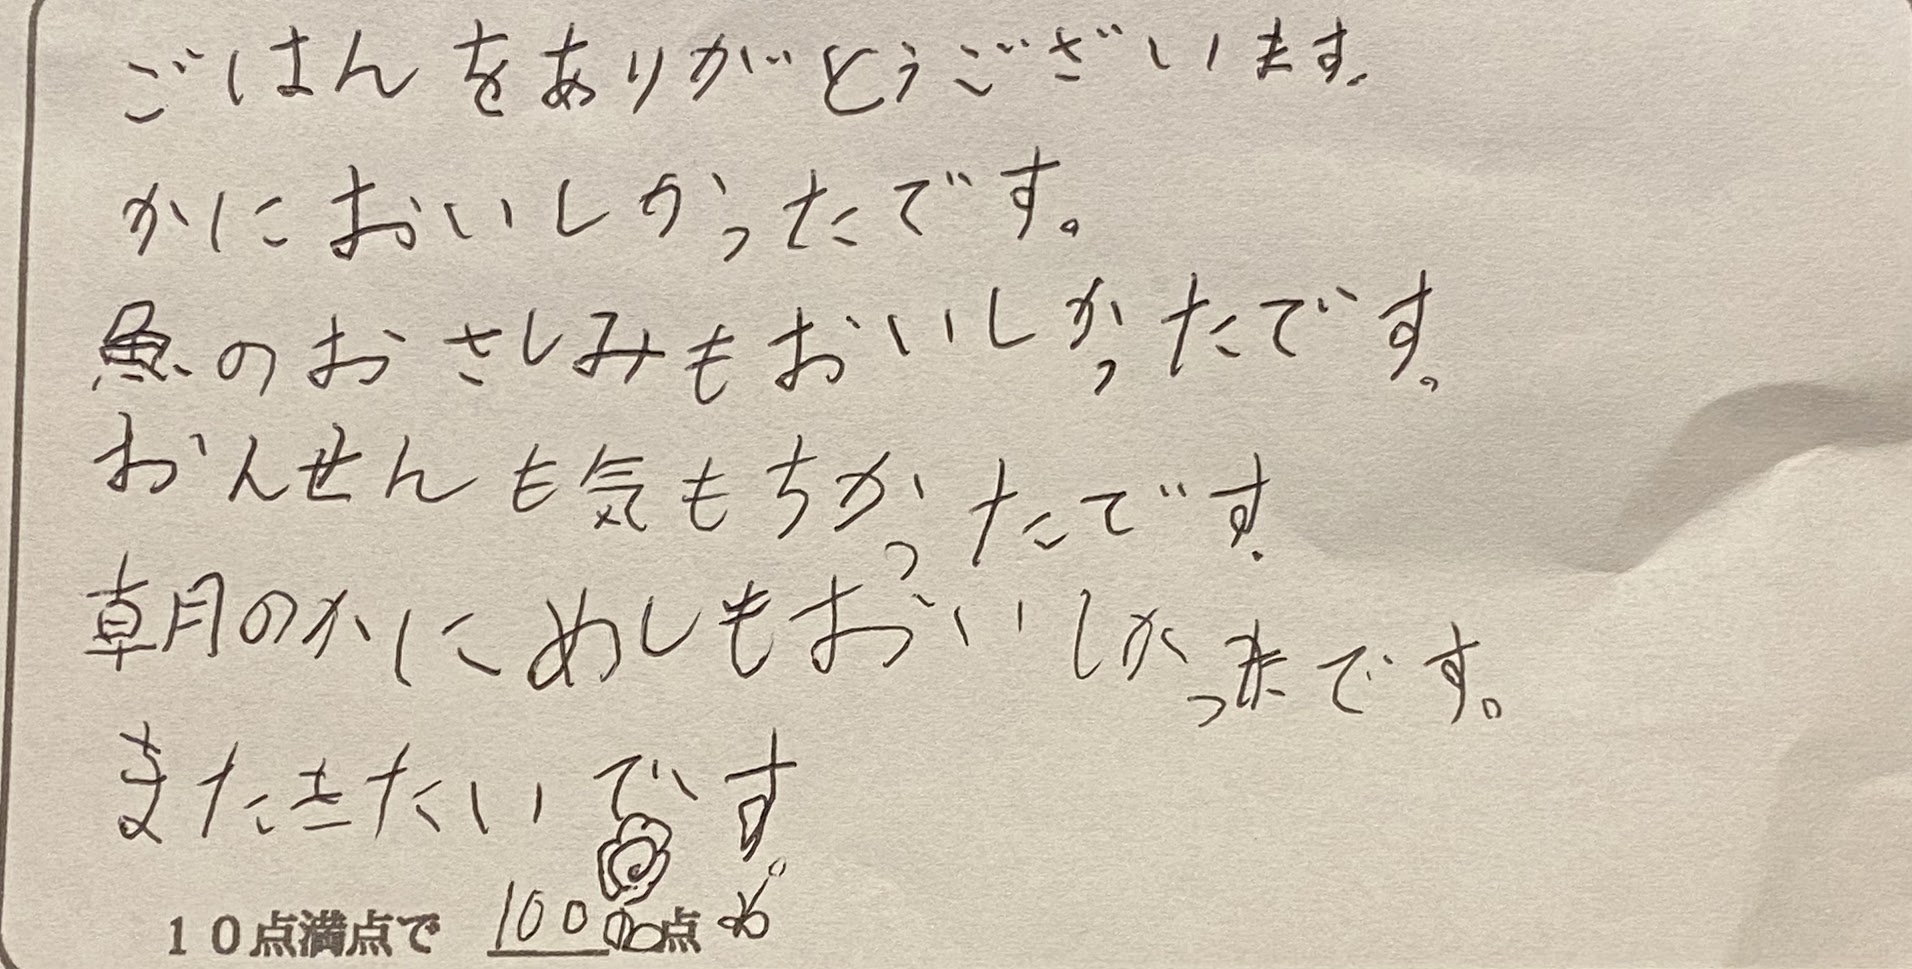 ごはんをありがとうございます。
かにおいしかったです。
魚のおさしみもおいしかったです。
おんせんも気もちかったです。
朝のかにめしもおいしかったです。
またきたいです。
10点満点で 100点